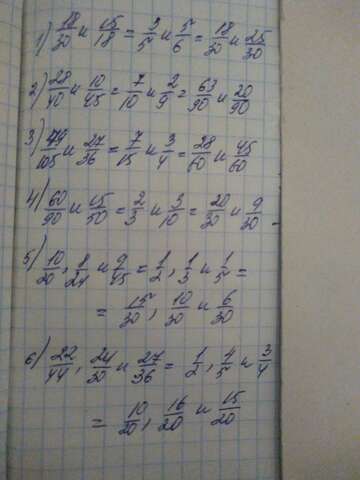 1) 18/30 и 15/18 = 3/5 и 5/6 = 18/30 и 25/30
2) 28/40 и 10/45 = 7/10 и 2/9 = 63/90 и 20/90
3) 49/105 и 27/36 = 7/15 и 3/4 = 28/60 и 45/60
4) 60/90 и 15/50 = 2/3 и 3/10 = 20/30 и 9/30
5) 10/20, 8/24 и 9/45 = 1/2, 1/3 и 1/5 =
= 15/30, 10/30 и 6/30
6) 22/44, 24/30 и 27/36 = 1/2, 4/5 и 3/4
= 10/20, 16/20 и 15/20